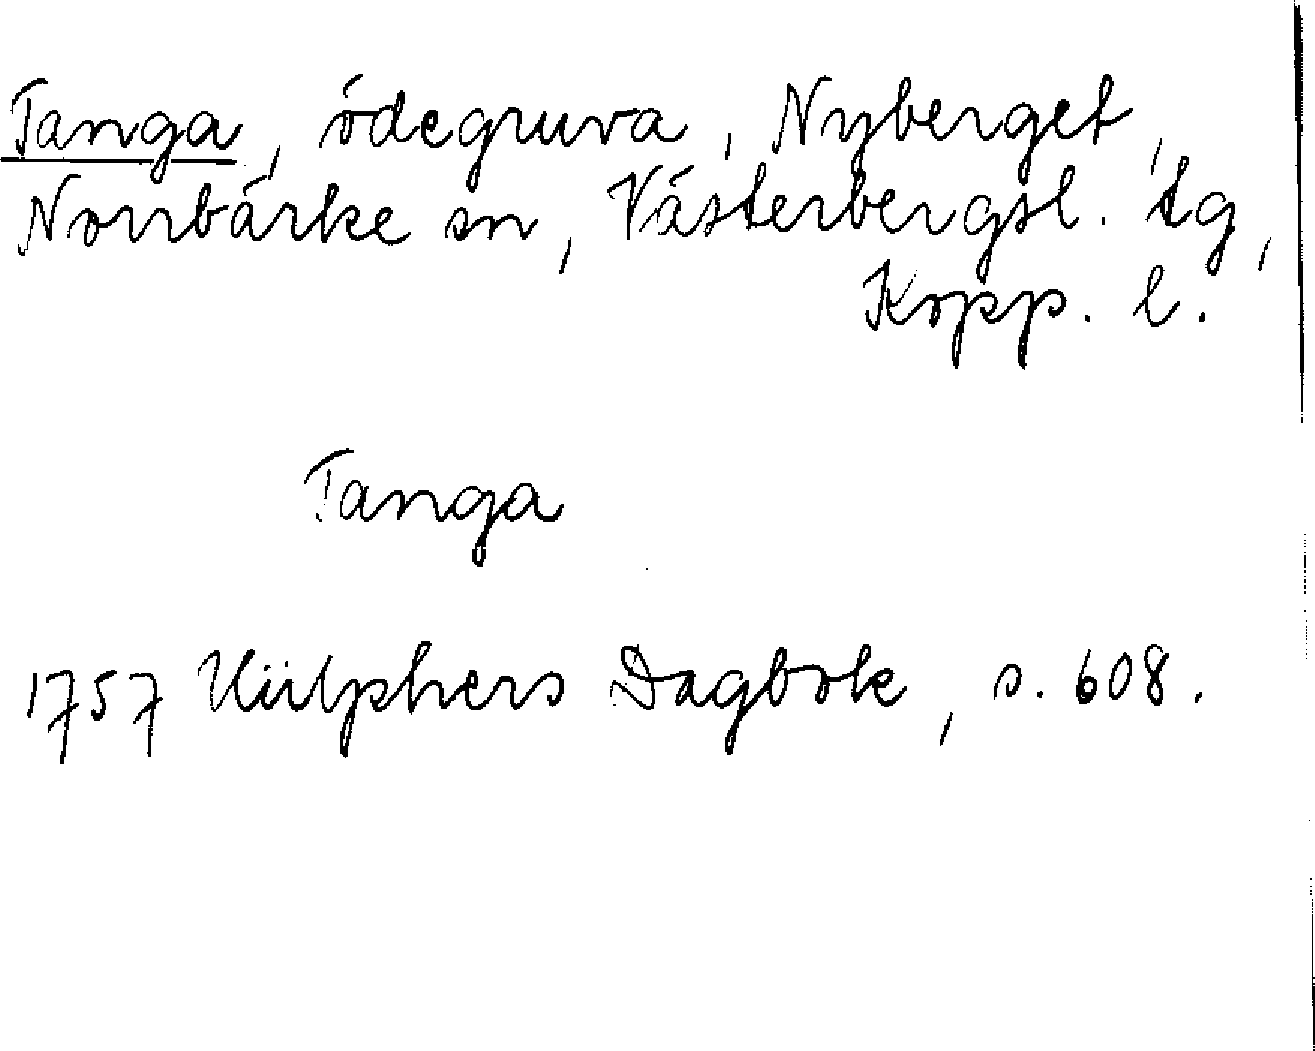 Tanga, ödegruva, Nyberget,
Norrbärke sn, Västerbergsl. tg,
Kopp. l.
Tanga
1757 Hülphers Dagbok, s. 608.